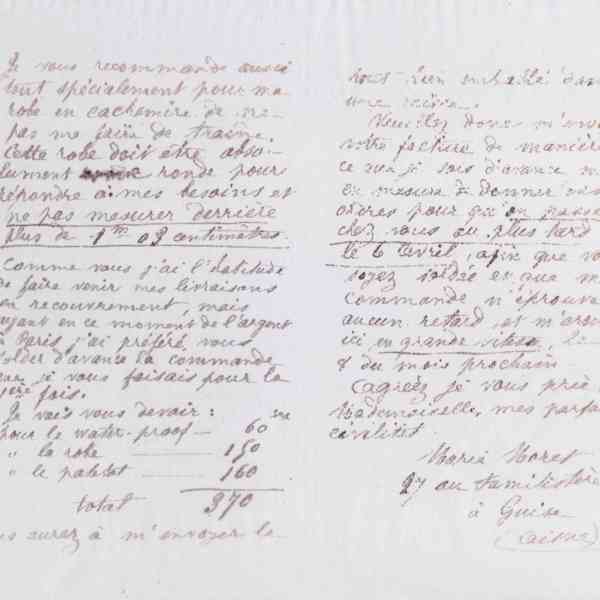 Je vous recommande aussi
tout spécialement pour ma
robe en cachemire de ne
pas me faire de traine.
Cette robe doit être abso-
lument ronde pour
répondre à mes besoins et
ne pas mesurer derrière
plus de 1m 03 centimètres.
Comme vous j'ai l'habitude
de faire venir mes livraisons
en recouvrement, mais
ayant en ce moment de l'argent
à Paris j'ai préféré vous
solder d'avance la commande
que je vous faisais pour la
1ère fois.
Je vais vous devoir :
pour le water-proof — 60
" la robe — 150
" le paletot — 160
total 370
vous aurez à m'envoyer le
tout bien emballé dans
une caisse.
Veuillez donc m'envoyer
votre facture de manière
ce que je sois d'avance
en mesure de donner
ordres pour qu'on passe
chez vous au plus tard
le 6 avril, afin que vous
soyez soldée et que ma
commande n'éprouve
aucun retard et m'arrive
ici en grande vitesse, le
8 du mois prochain.
Agréez je vous prie
Mademoiselle, mes parfaites
civilités.
Marie Moret
27 au familistère
à Guise
(Aisne)